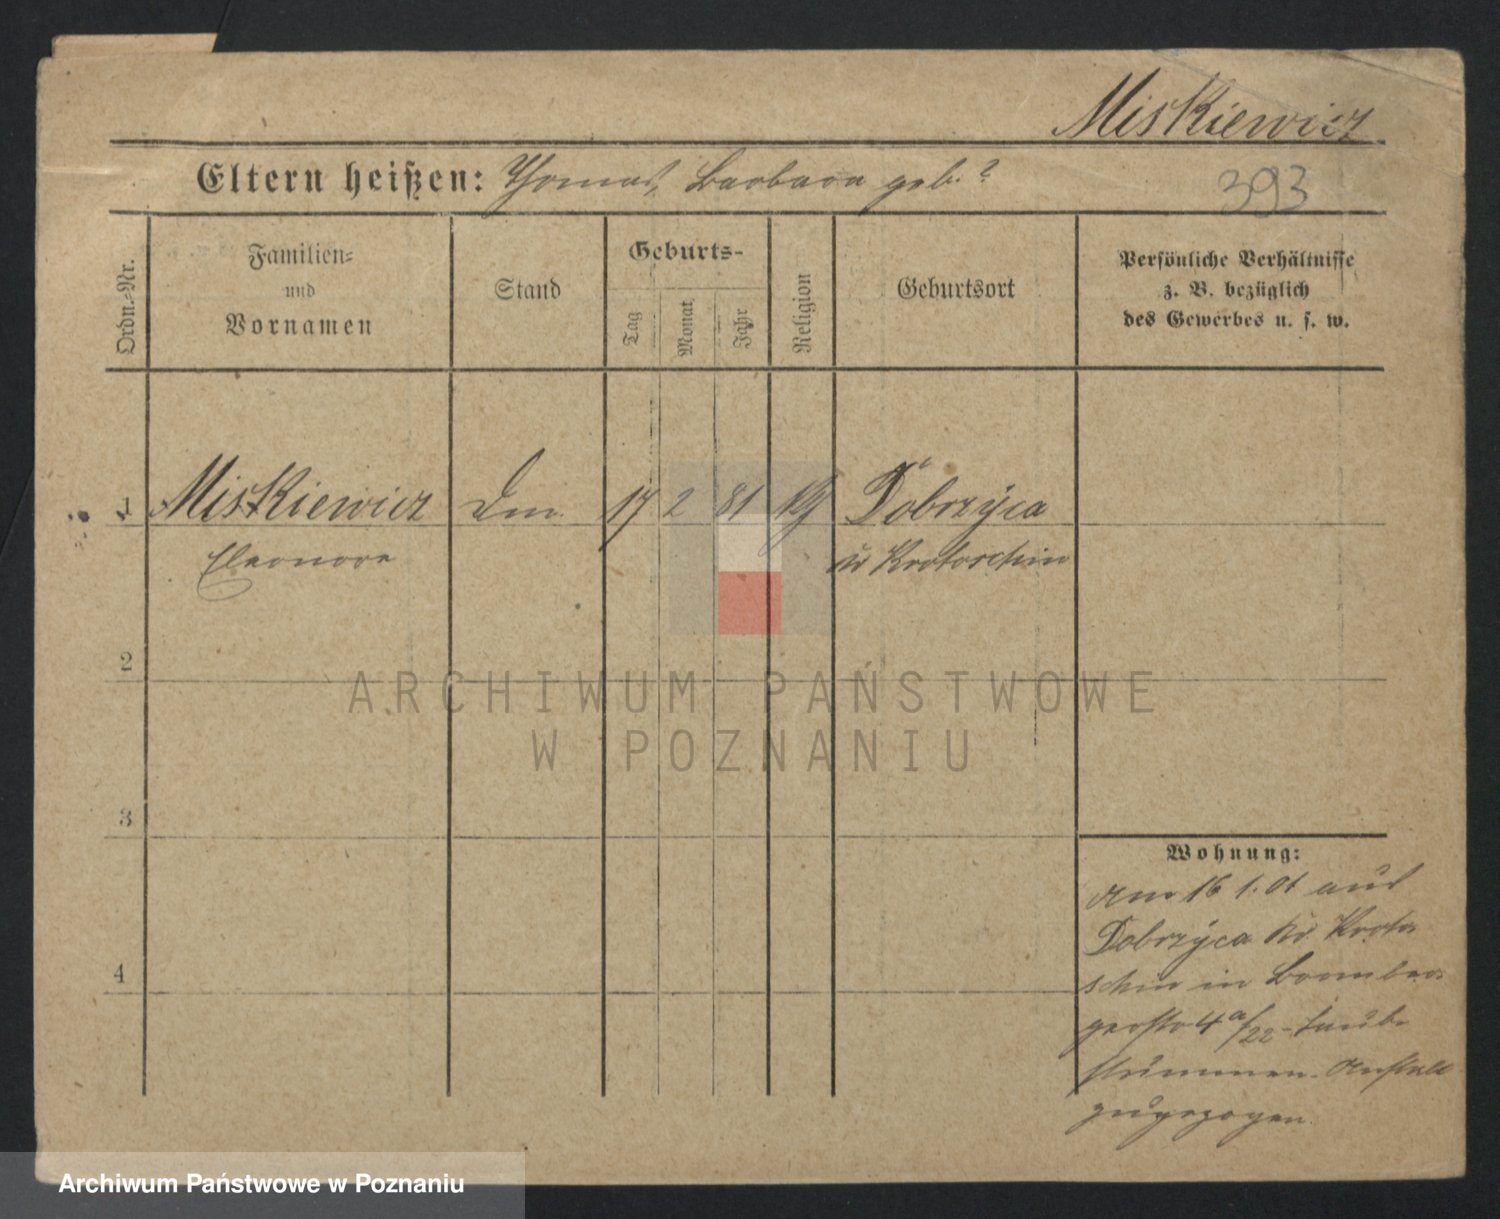 Miskiewicz
Eltern heißen: Thomas, Barbara geb. ?
393
Ordn.-Nr.
Familien-
und
Vornamen
Stand
Geburts-
Tag
Monat
Jahr
Religion
Geburtsort
Persönliche Verhältnisse
z. B. bezüglich
des Gewerbes u. s. w.
1 Miskiewicz 17 2 81 Dobrzyca
Eleonore Kr Krotoschin
2
3
4
ARCHIWUM PAŃSTWOWE
W POZNANIU
Wohnung:
Am 16 1. 01 aus
Dobrzyca Kr Kroto
schin in Bromber
gerstr 4a/22 - Taub
stummen - Anstalt
zugezogen
Archiwum Państwowe w Poznaniu